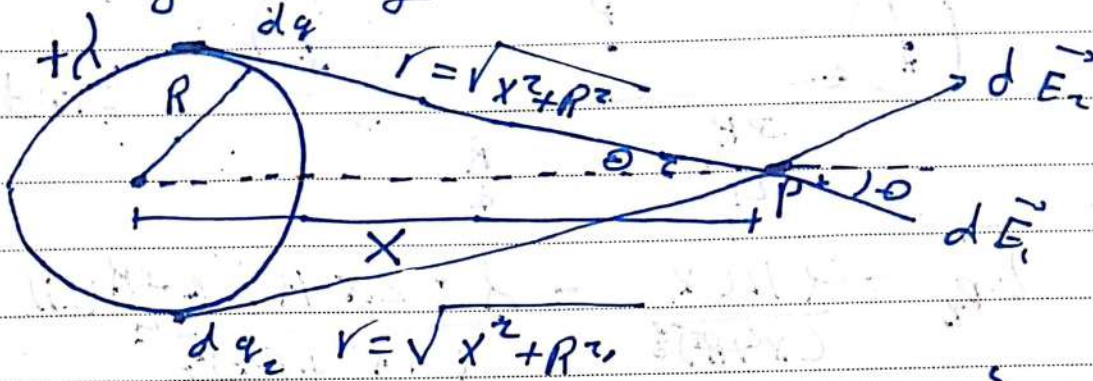 dq
+λ
R
r = √x²+R²
dE₂
θ
P
θ
dE₁
X
dq₂ r = √x²+R²